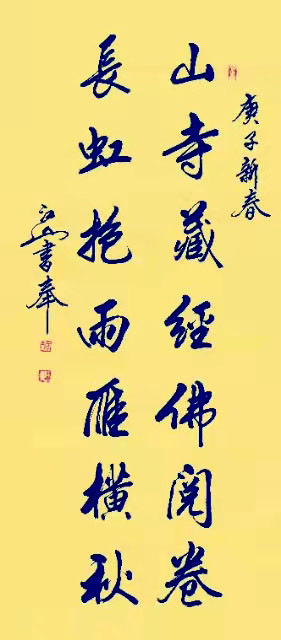 庚子新春
山寺藏經佛閱卷
長虹抱雨雁橫秋
江山書奉